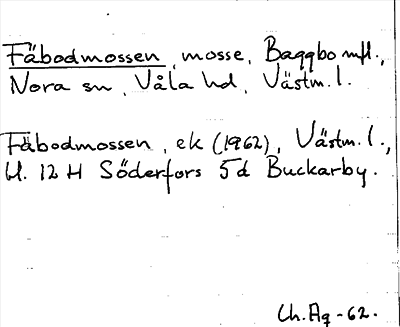 Fäbodmossen, mosse, Baggbo mfl.,
Nora sn, Våla hd, Västm. l.
Fäbodmossen, ek (1962), Västm. l.,
bl. 12 H Söderfors 5d Buckarby.
Ch. Ag -62.